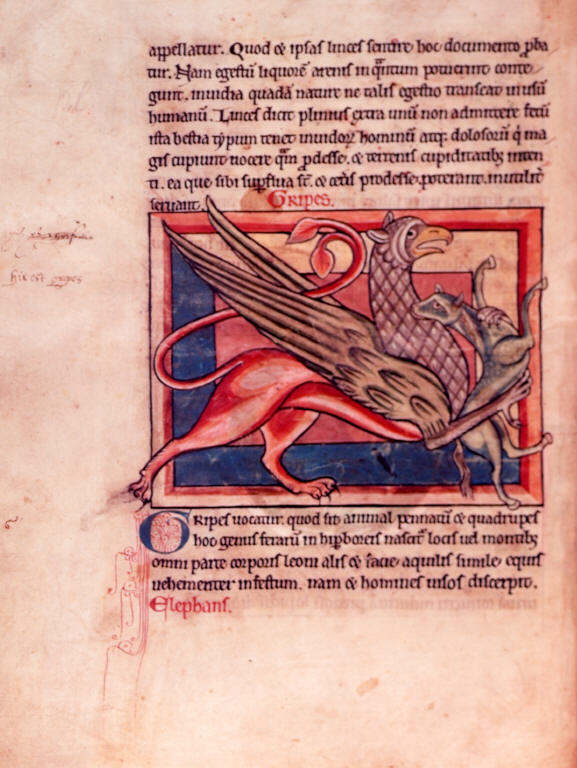 appellatur. Quod & ipsas linces sentire hoc documento ꝓba
tur. Nam egestū liquorē arenis in q̄ntum potuerint conte
gunt. inuidia quadā nature ne talis egestio transeat in usū
humanū. Linces dicit plinius extra unū non admittere fetū
ista bestia typum tenet inuidorꝝ hominū atqꝫ dolosorū q̇ ma
gis cupiunt nocere q̄m ꝓdesse. & terrenis cupiditatibꝫ inten
ti. ea que sibi suꝑflua st̄. & cet̄is prodesse poterant. inutilit̄
seruant.
Gripes.
hic est gripes
GRipes uocatur. quod sit animal pennatū & quadrupes
hoc genus ferarū in hiperboreis nascit̄ locis uel montibꝫ
omni parte corporis leoni alis & facie aquilis simile. equis
uehementer infestum. nam & homines uisos discerpit.
Elephans.